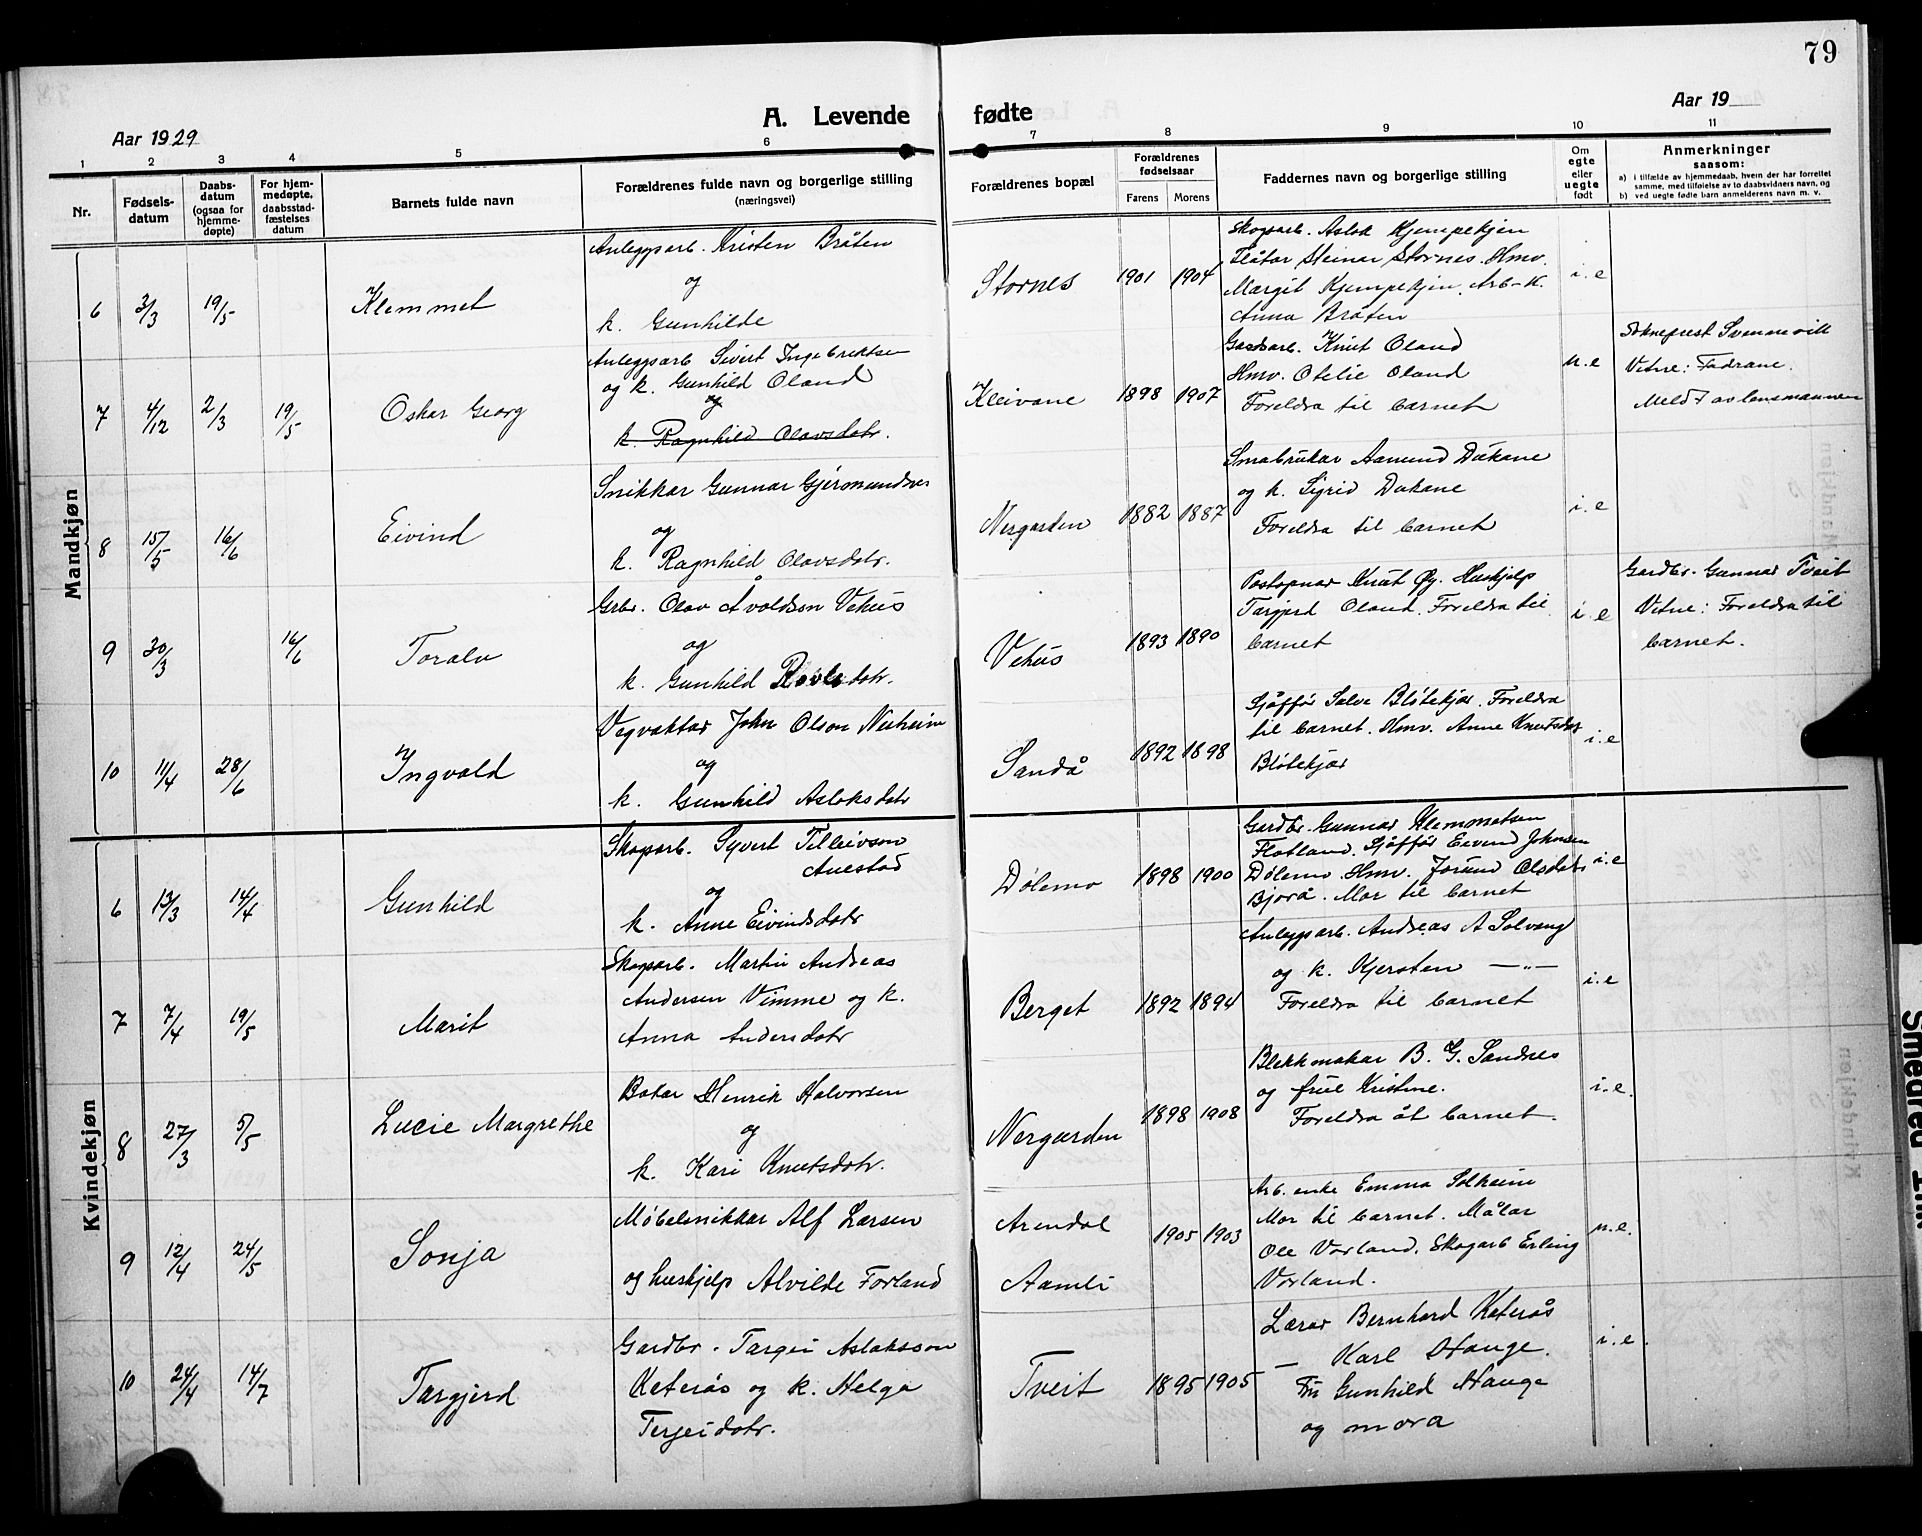 79
A. Levende fødte
Aar 1929
Aar 19
1 2 3 4 5 6 7 8 9 10 11
Nr.
Fødsels-
datum
Daabs-
datum
(ogsaa for
hjemme-
døpte)
For hjem-
medøpte,
daabsstad-
fæstelses
datum
Barnets fulde navn
Forældrenes fulde navn og borgerlige stilling
(næringsvei)
Forældrenes bopæl
Forældrenes
fødselsaar
Farens Morens
Faddernes navn og borgerlige stilling
Om
egte
eller
uegte
født
Anmerkninger
saasom:
a) i tilfælde av hjemmedaab, hvem der har forrettet
samme, med tilføielse av to daabsvidners navn, og
b) ved uegte fødte barn anmelderens navn m. v.
Mandkjøn
6 3/3 19/5 Klemmet
Anleggsarb. Kristen Bråten
og
k. Gunhilde
Stornes 1901 1904
Skogsarb. Aslak Kjempekjen
Flåtar Steinar Stornes. Hmv.
Margit Kjempekjen. Arb-k.
Anna Bråten
i. e
7 4/12 2/3 19/5 Oskar Georg
Anleggsarb Sivert Ingebriktsen
og k. Gunhild Oland
og
k. Ragnhild Olavsdotr.
Kleivane 1898 1907
Gardsarb. Knut Oland
Hmv. Otelie Oland
Foreldra til barnet
u. e
Sokneprest Svennevik
Vitne: Fadrane.
Meldt av lensmannen
8 15/5 16/6 Eivind
Snikkar Gunnar Gjermundsen
og
k. Ragnhild Olavsdotr.
Nergarden 1882 1887
Småbrukar Aamund Dukane
og k. Sigrid Dukane
Foreldra til barnet
i. e
9 30/3 16/6 Toralv
Grbr. Olav Åvoldson Vehus
og
k. Gunhild Roolvsdotr.
Vehus 1893 1890
Postopnar Knut Øy. Huskjelp
Targjerd Oland. Foreldra til
barnet
i. e
Gardbr. Gunnar Tveit
Vitne: Foreldra til
barnet.
10 11/4 28/6 Ingvald
Vegvaktar John Olson Neiheim
og
k. Gunhild Aslaksdotr
Sandå 1892 1898
Sjåffør Salve Bløtekjær. Foreldra
til barnet. Hmv. Anne Knutsdotr
Bløtekjær
i. e
Kvindekjøn
6 13/3 14/4 Gunhild
Skogsarb. Syvert Telleivson
Auestad
og
k. Anne Eivindsdotr
Dølemo 1898 1900
Gardbr. Gunnar Klemmetsen
Flatland. Sjåffør Eivind Johnsen
Dølemo. Hmv. Jorund Olsdotr
Bjorå. Mor til barnet
i. e
7 7/4 19/5 Marit
Skogsarb. Martin Andreas
Andersen Vimme og k.
Anna Andersdotr
Berget 1892 1894
Anleggsarb. Andreas A Solvang
og k. Kjersten —„—
Foreldra til barnet
i. e
8 27/3 5/5 Lucie Margrethe
Bakar Henrik Halvorsen
og
k. Kari Knutsdotr.
Nergarden 1898 1908
Blekkmakar B. G. Sandnes
og frue Kristine.
Foreldra åt barnet.
i. e.
9 12/4 24/5 Sonja
Møbelsnikkar Alf Larsen
og huskjelp Alvilde Forland
Arendal
Aamli
1905 1903
Arb. enke Emma Solheim
Mor til barnet. Målar
Ole Vorland. Skogarb Erling
Vorland.
u. e.
10 24/4 14/7 Targjerd
Gardbr. Targei Aslaksson
Keterås og k. Helga
Terjeidotr.
Tveit 1895 1905
Lærar Bernhard Keterås
— Karl Hauge.
Fru Gunhild Hauge
og mora
i. e.